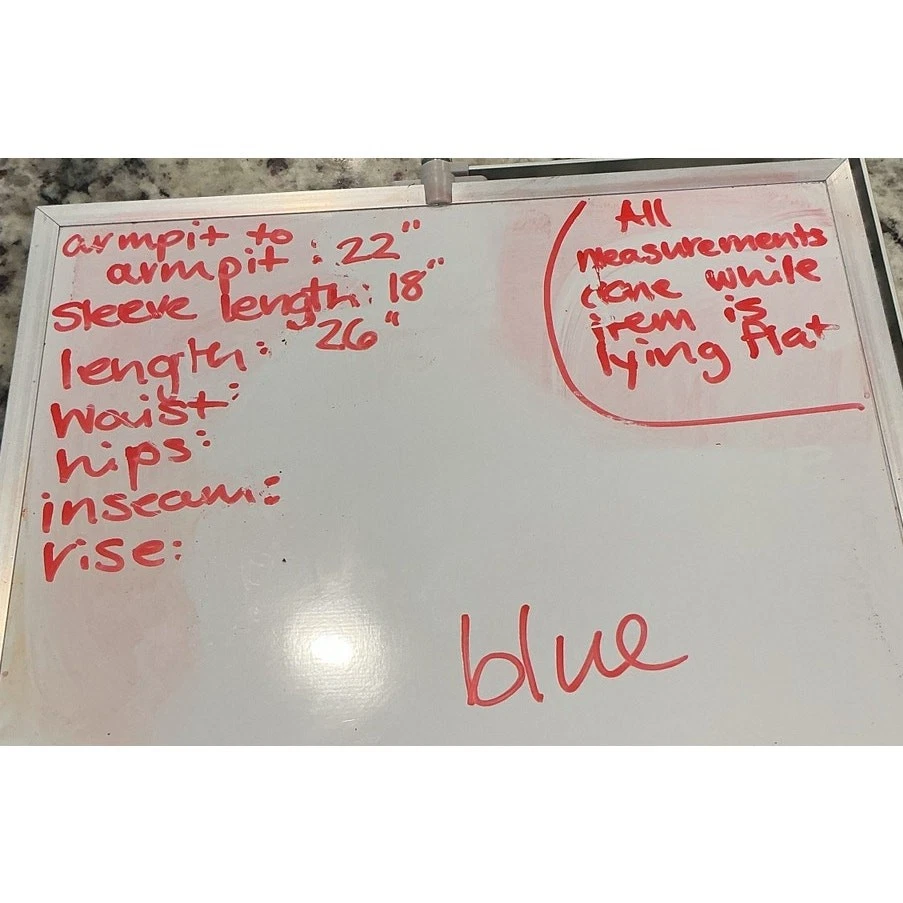 armpit to
armpit : 22"
sleeve length: 18"
length: 26"
waist:
hips:
inseam:
rise:
All
measurements
done while
item is
lying flat
blue